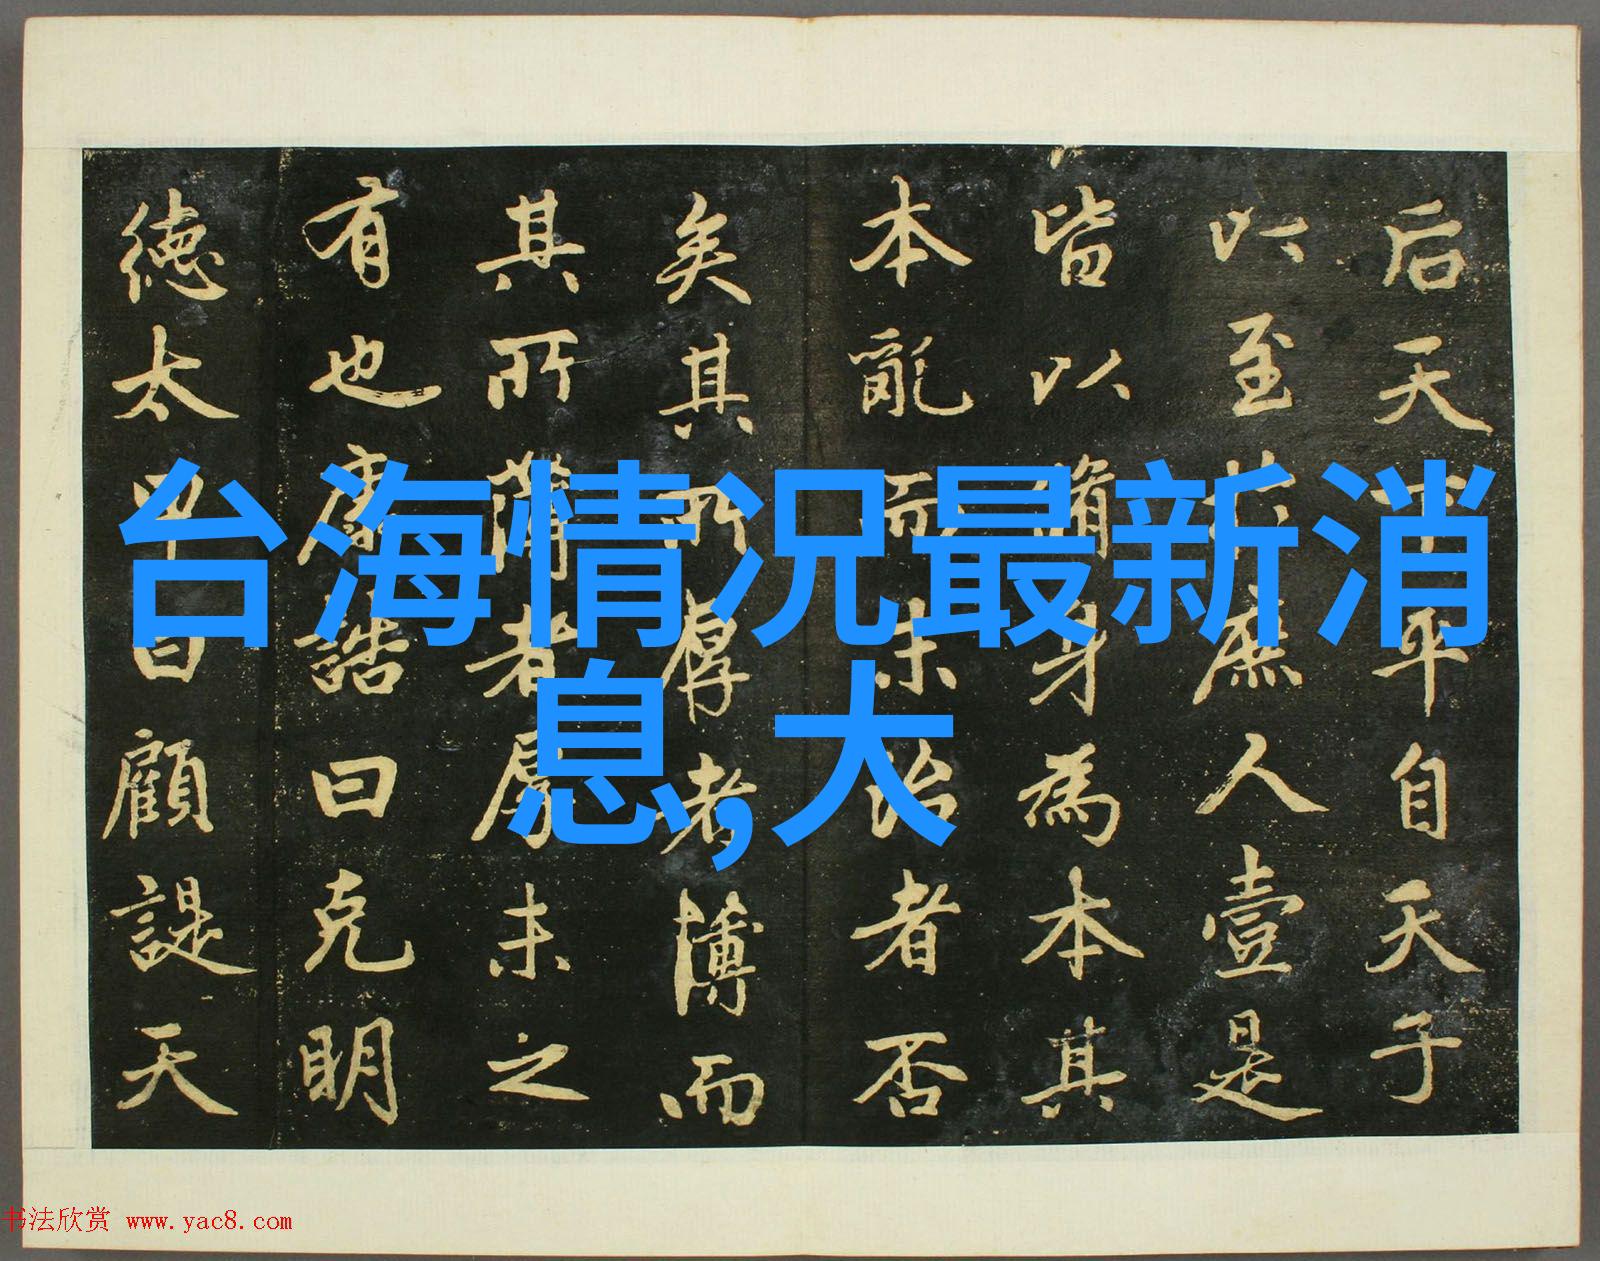 台海情况最新消
息,大
后天下平自天子
以至於庶人壹是
皆以脩身為本其
本亂而末治者否
矣其所厚者薄而
其所薄者厚未之
有也康誥曰克明
德太甲曰顧諟天
书法欣赏 www.yac8.com